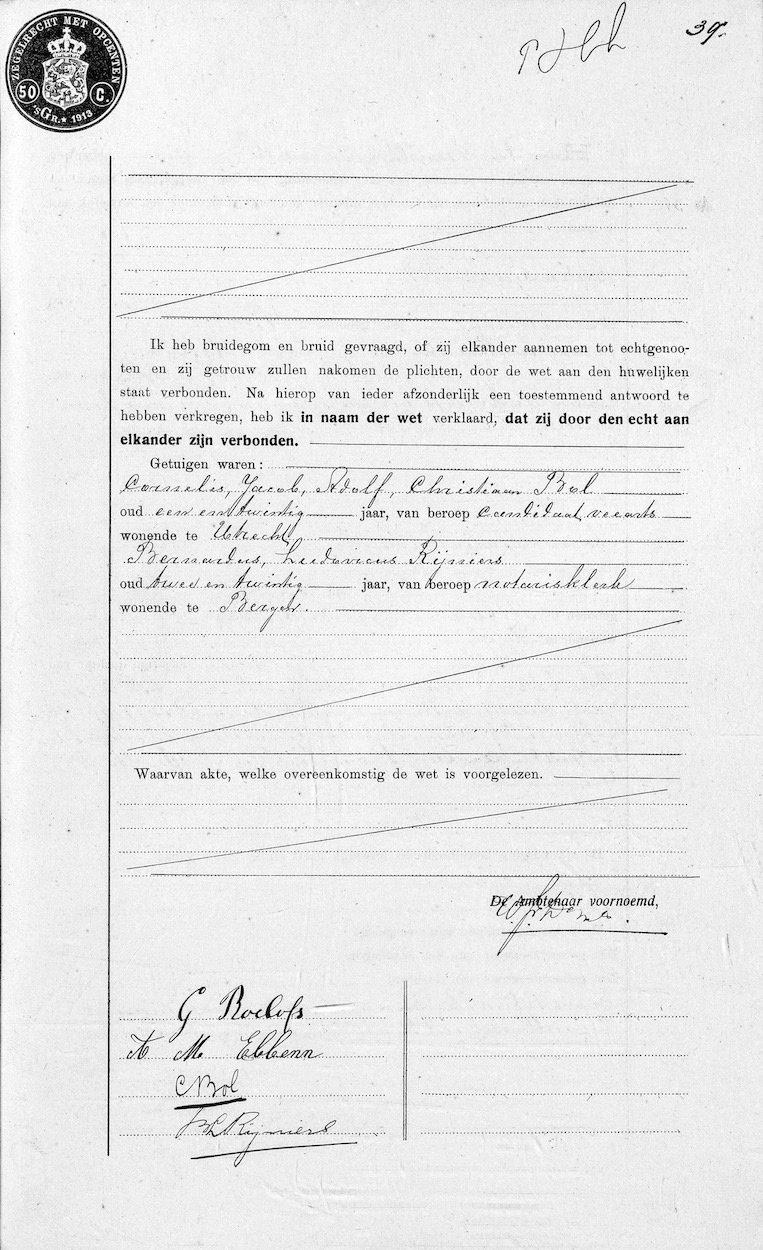 ZEGELRECHT MET OPCENTEN
50 C.
'sGR.★ 1913
39.
Ik heb bruidegom en bruid gevraagd, of zij elkander aannemen tot echtgenoo-
ten en zij getrouw zullen nakomen de plichten, door de wet aan den huwelijken
staat verbonden. Na hierop van ieder afzonderlijk een toestemmend antwoord te
hebben verkregen, heb ik in naam der wet verklaard, dat zij door den echt aan
elkander zijn verbonden.
Getuigen waren:
Cornelis, Jacob, Adolf, Christiaan Bol
oud een en twintig jaar, van beroep candidaat veearts
wonende te Utrecht
Bernardus, Ludovicus Rijniers
oud twee en twintig jaar, van beroep notarisklerk
wonende te Bergen.
Waarvan akte, welke overeenkomstig de wet is voorgelezen.
De Ambtenaar voornoemd,
G Roelofs
A M Ebbenn
C Bol
BL Rijniers